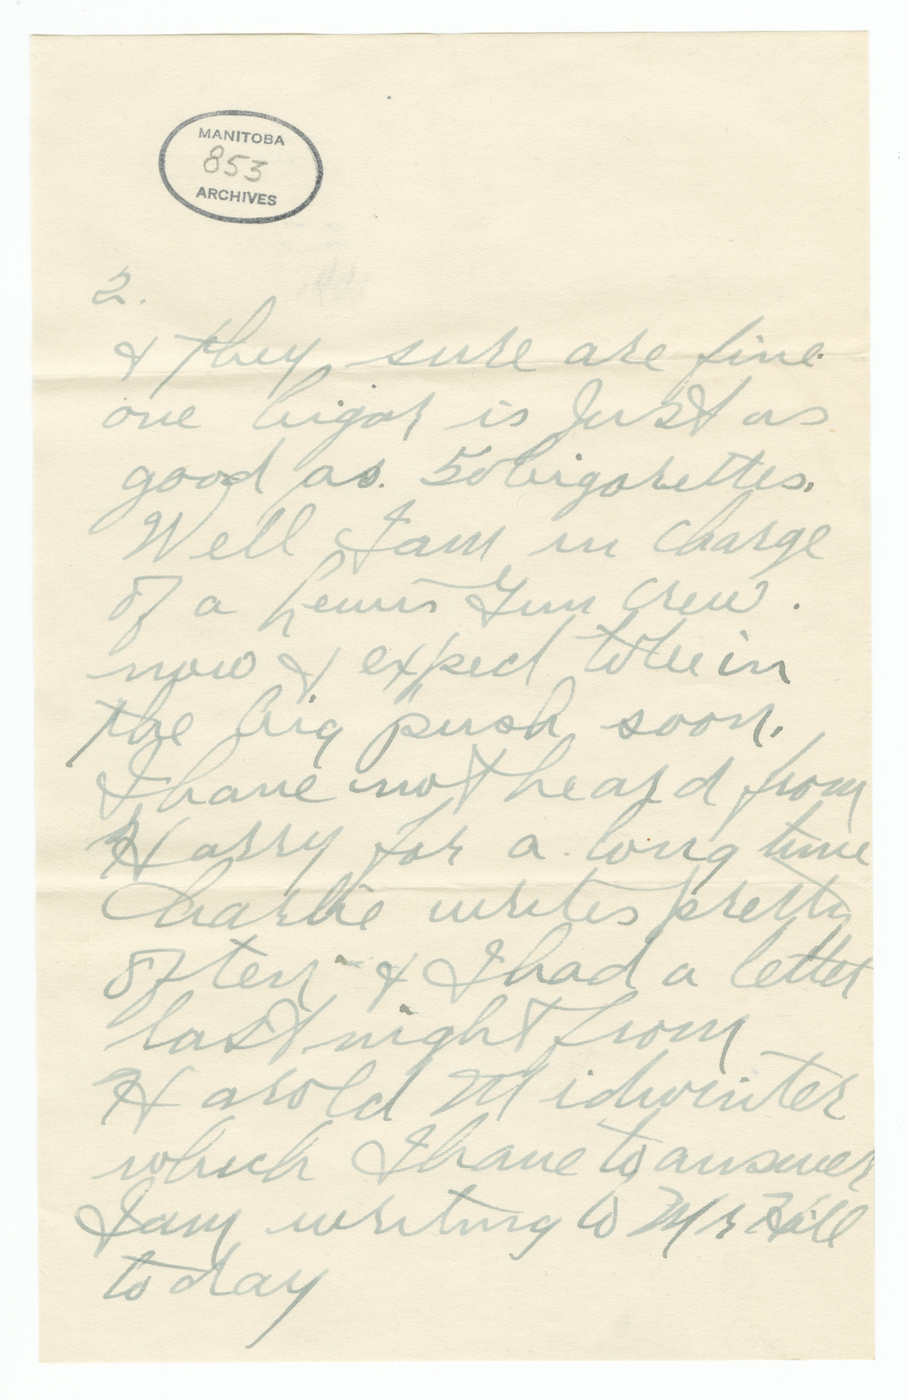 MANITOBA
853
ARCHIVES
2.
& they sure are fine
one Cigar is Just as
good as. 50 Cigarettes.
Well I am in charge
of a Lewis Gun Crew.
now & expect to be in
the big push soon.
I have not heard from
Harry for a long time
Charlie writes pretty
often - & I had a letter
last night from
Harold Midwinter
which I have to answer
I am writing to Mr Hill
to day